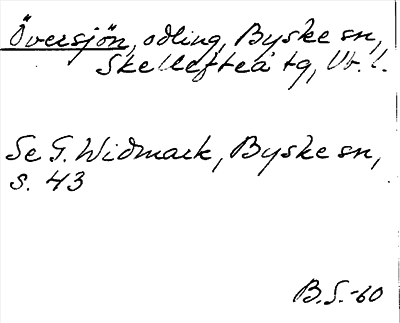 Översjön, odling, Byske sn,
Skellefteå tg, Vb. l.
Se G. Widmark, Byske sn,
s. 43
B.S.-60